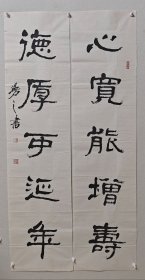 心寬能增壽
德厚可延年